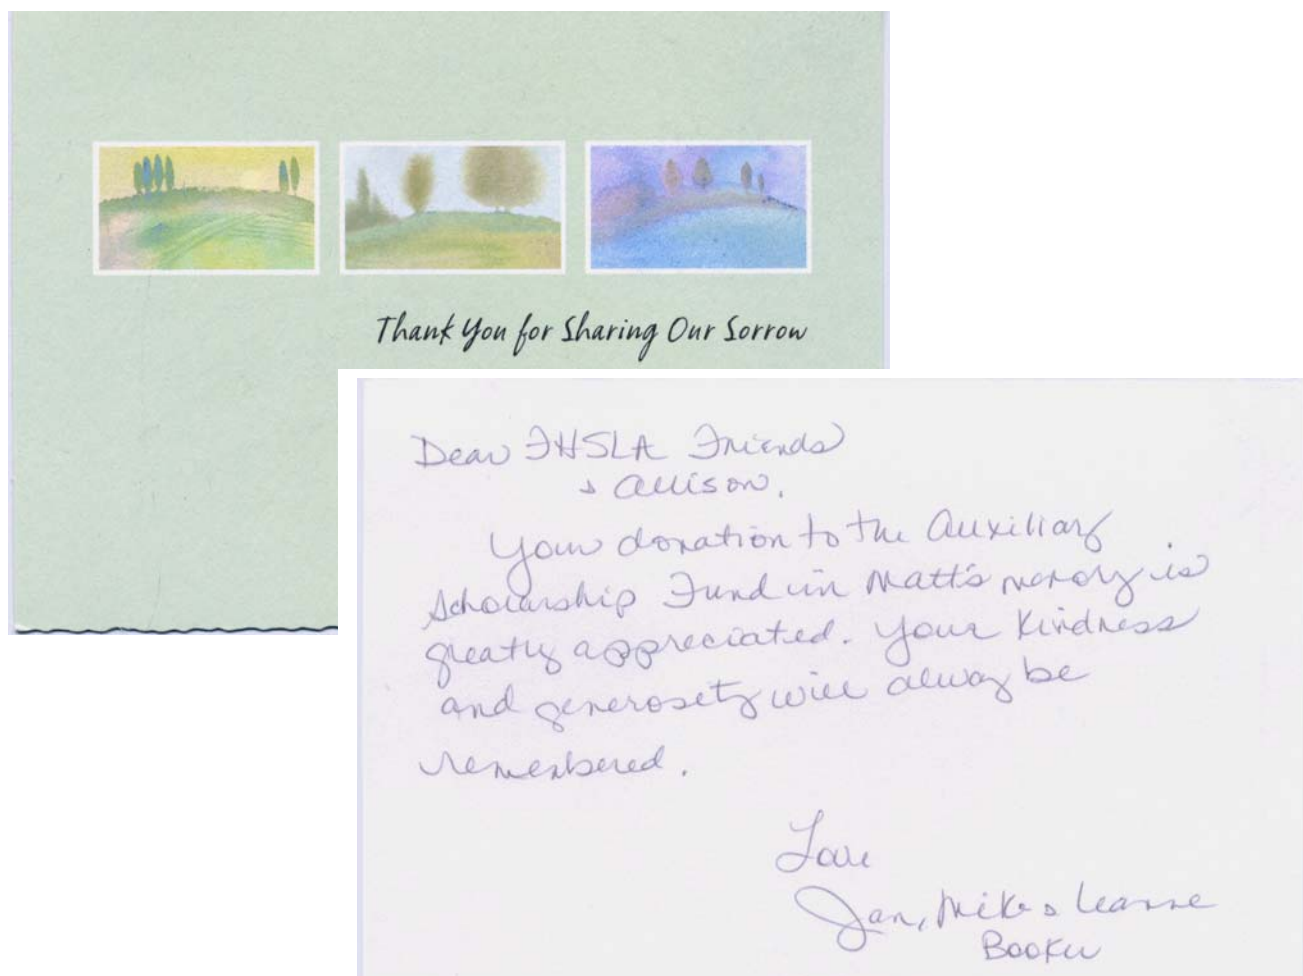 Thank You for Sharing Our Sorrow
Dear FHSLA Friends
& Allison,
Your donation to the Auxiliary
Scholarship Fund in Matt's memory is
greatly appreciated. Your kindness
and generosety will alway be
remembered.
Love
Jan, Mike & Leanne